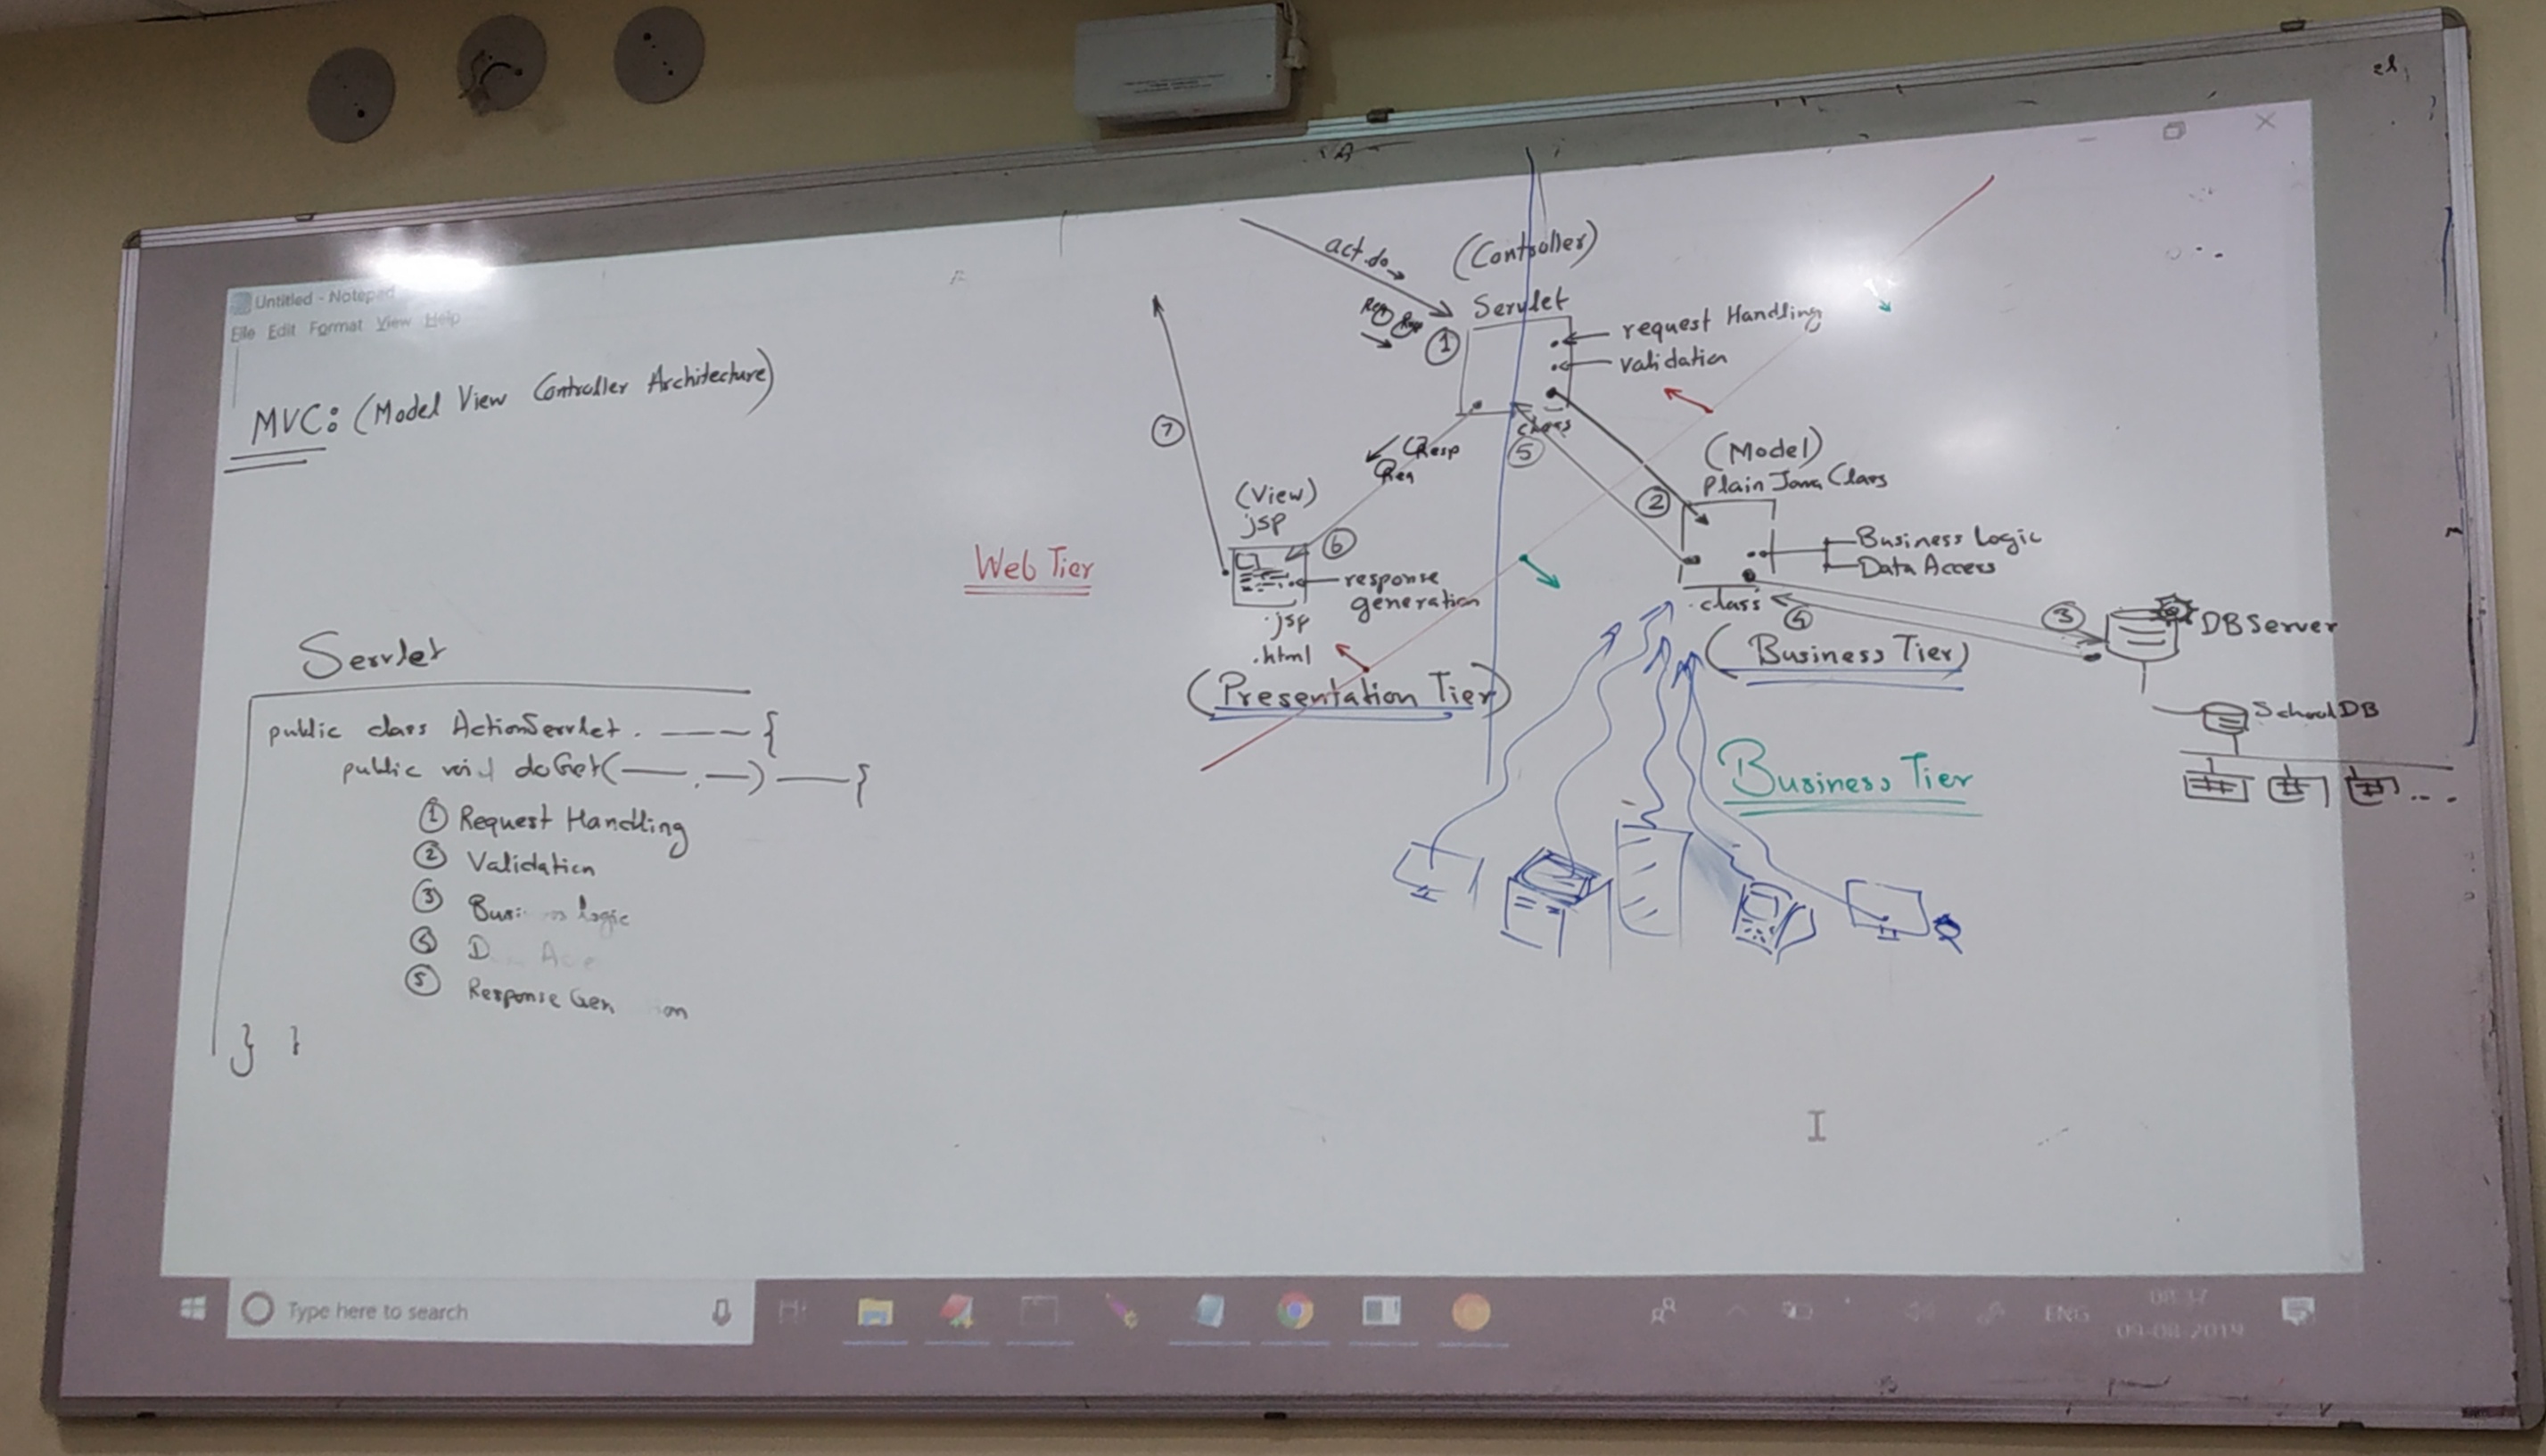 Untitled - Notepad
File Edit Format View Help
MVC: (Model View Controller Architecture)
Servlet
public class ActionServlet. {
public void doGet( , ) {
① Request Handling
② Validation
③ Busi ss logic
④ D
⑤ Response Gen on
} }
Web Tier
act.do
(Controller)
Servlet
①
request Handling
validation
⑦
⑤
Resp
Req
(View)
jsp
⑥
response
generation
.jsp
.html
(Presentation Tier)
(Model)
Plain Java Class
②
Business Logic
Data Access
.class
④
③
DB Server
(Business Tier)
SchoolDB
Business Tier
Type here to search
ENG
08:37
09-08-2019